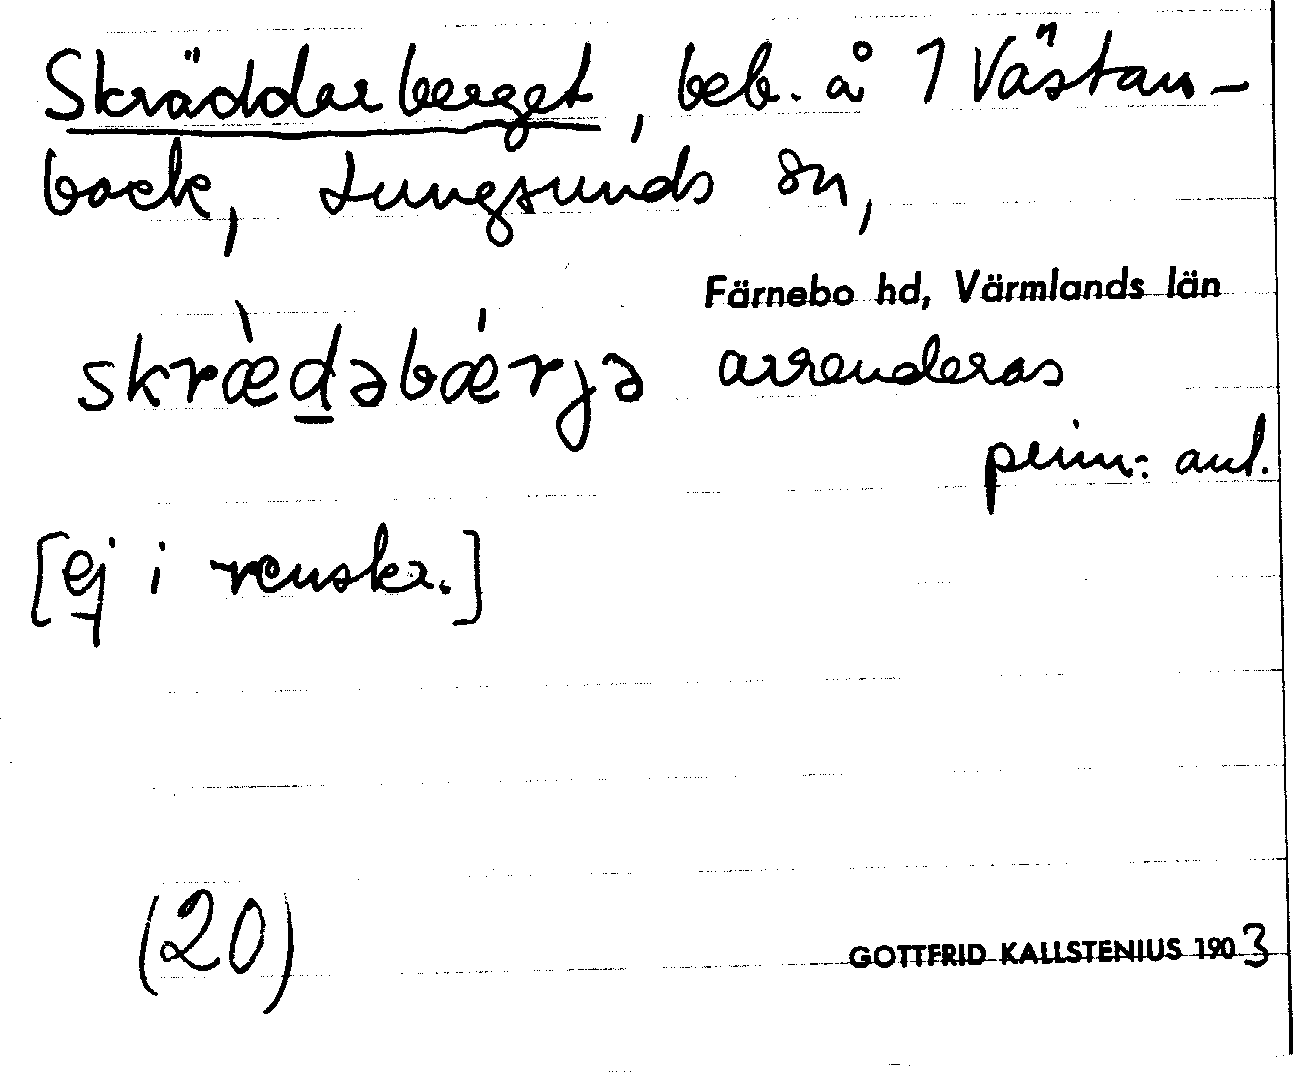 Skräddarberget, beb. å 1 Västan-
back, Lungsunds sn,
Färnebo hd, Värmlands län
skræ̀d̲əbǽrjə arrenderas
prim. ant.
[ej i renskr.]
(20)
GOTTFRID KALLSTENIUS 1903